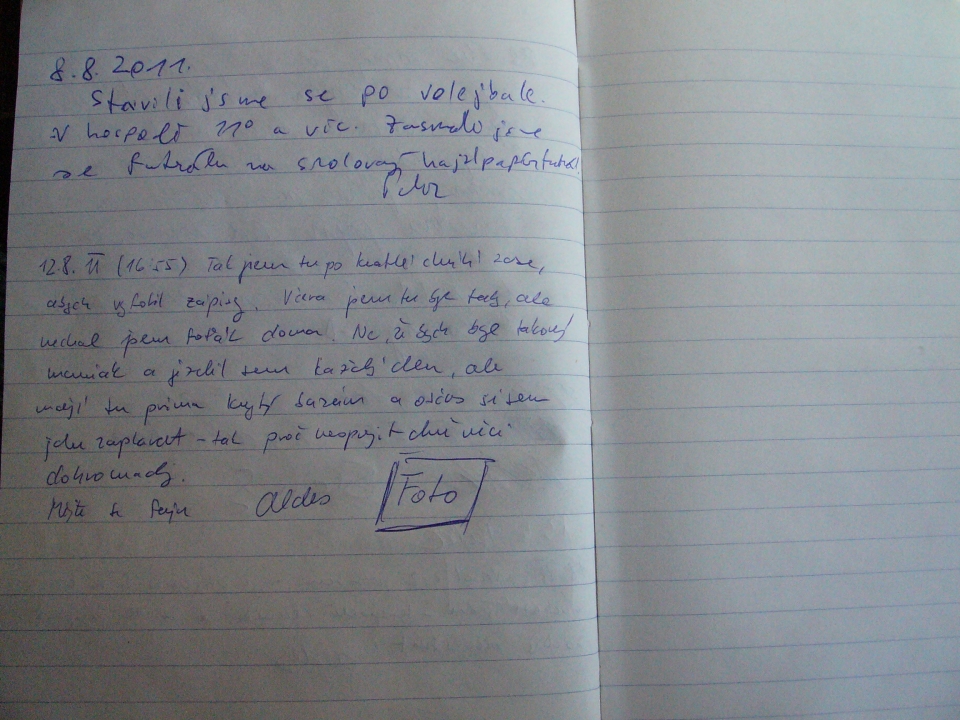 8.8.2011.
Stavili jsme se po volejbale.
v hospodě 11° a víc. Zasmáli jsme
se na srolovaný hajzlpapír
12.8. 11 (16:55) Tak jsem tu po krátké chvíli zase,
abych vyfotil zápisy. Včera jsem tu byl taky, ale
nechal jsem foťák doma. Ne, že bych byl takový
maniak a jezdil sem každý den, ale
mají tu prima krytý bazén a občas si sem
jdu zaplavat - tak proč nespojit dvě věci
dohromady.
Mějte se fajn Aldes Foto